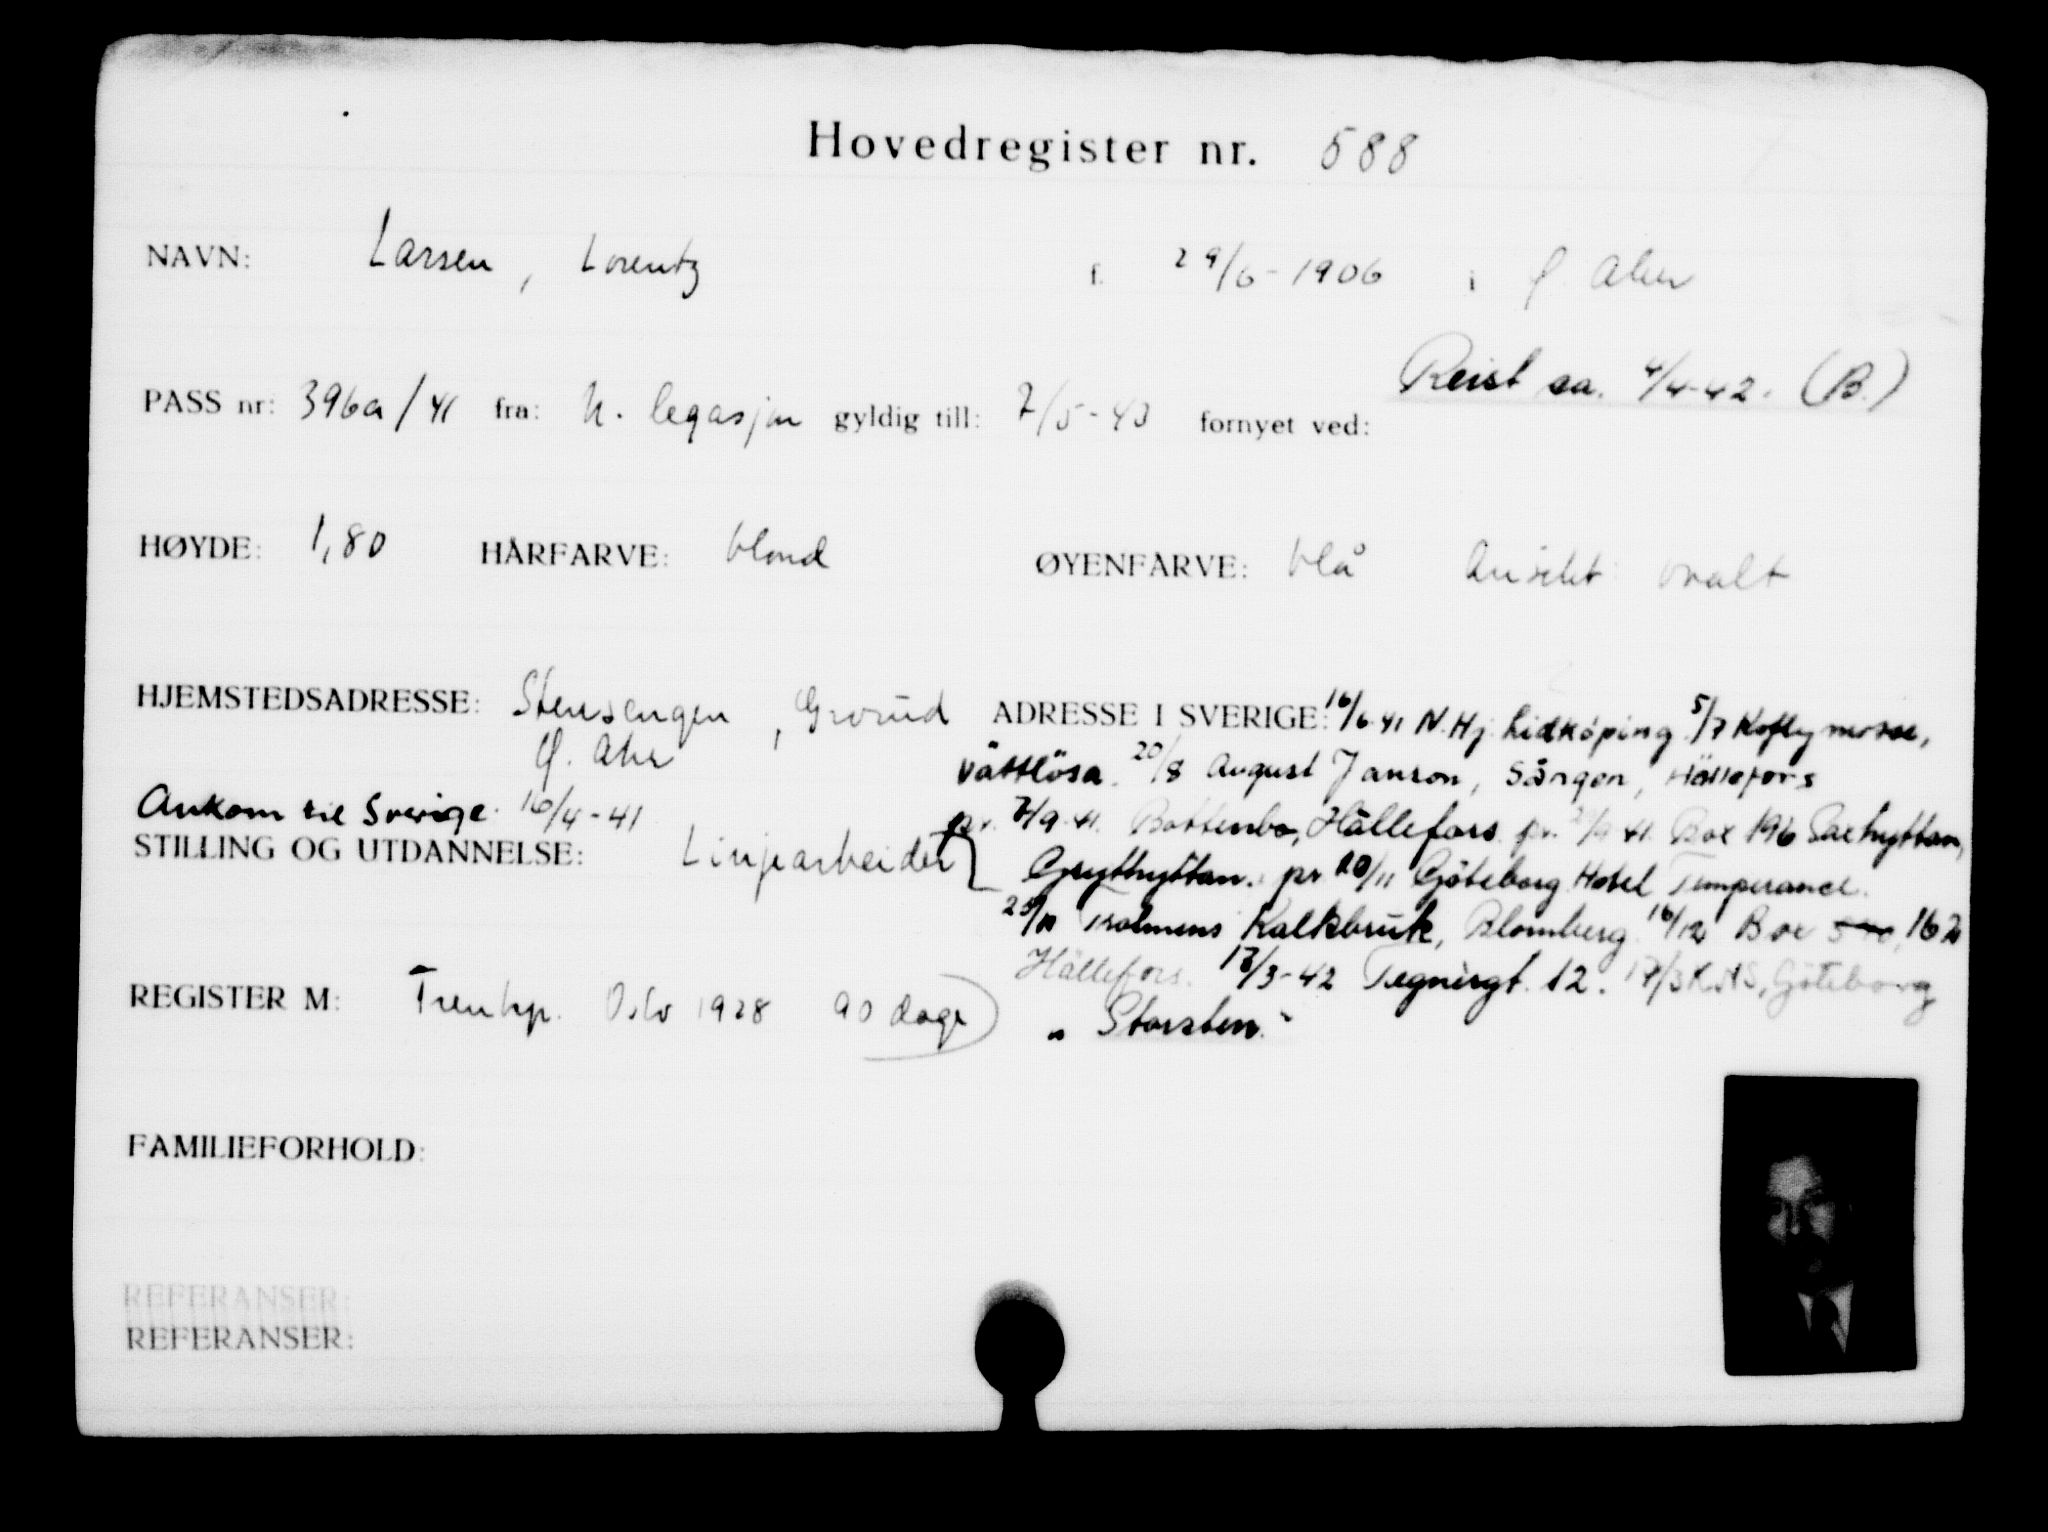 Hovedregister nr. 588
NAVN: Larsen, Lorentz f. 29/6-1906 i Ø Aker
Reist sa. 4/4-42. (B.)
PASS nr: 396a/41 fra: N. legasjon gyldig till: 7/5-43 fornyet ved:
HØYDE: 1,80 HÅRFARVE: blond ØYENFARVE: blå Ansikt ovalt
HJEMSTEDSADRESSE: Stensengen, Grorud
Ø. Aker
ADRESSE I SVERIGE: 16/6-41 N. Hj. Lidköping 5/7 Kofly mosse,
Vättlösa. 20/8 August Janson, Sången, Hällefors
pr. 7/9-41. Bottenbo, Hällefors. pr. 41. Box 196 Saxhyttan,
Grythyttan. pr 20/11 Göteborg Hotel Temperance.
25/11 Trolmens Kalkbruk, Blomberg. 16/12 Box 162
Hällefors. 17/3-42 Tegnérgt. 12. 17/3 K.A.S, Göteborg
"Storsten."
Ankom til Sverige. 16/4-41
STILLING OG UTDANNELSE: Linjearbeider
REGISTER M: Trenhp. Oslo 1928 90 dage
FAMILIEFORHOLD:
REFERANSER:
REFERANSER: